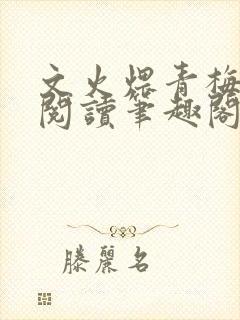 文火煨青梅
閱讀筆趣閣
滕麗名